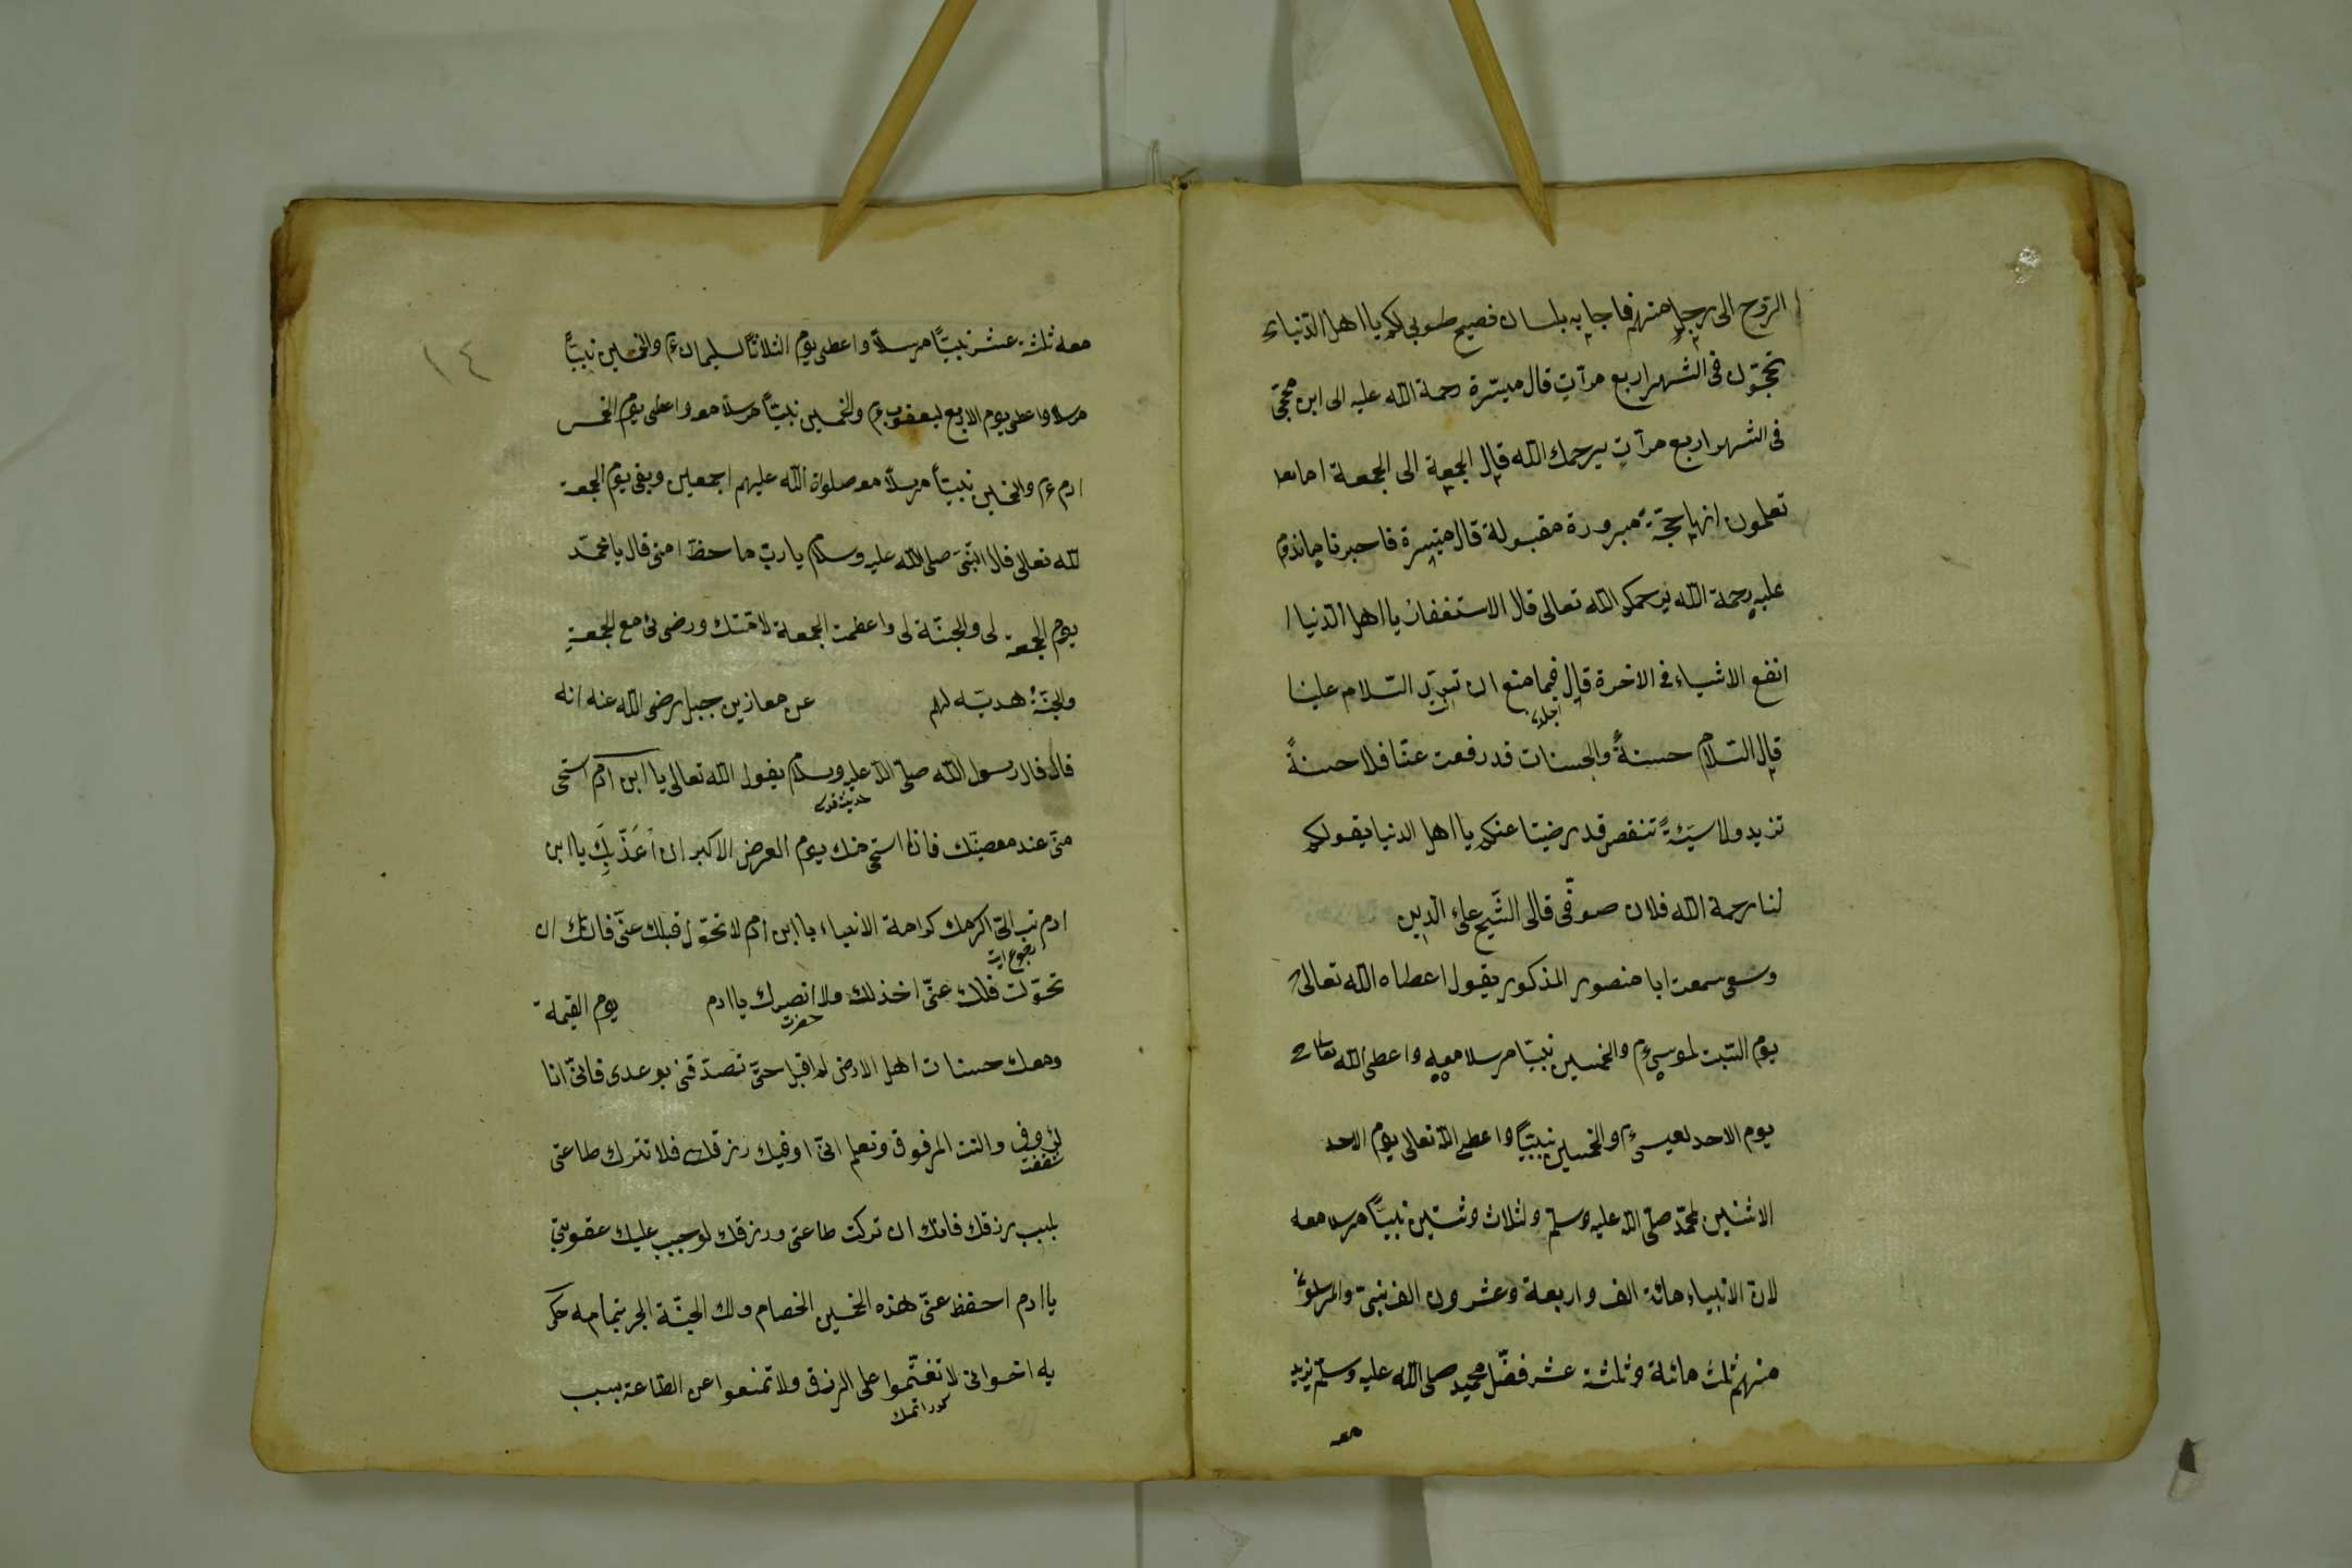 الروح الى رجل منهم فاجابه بلسان فصيح طوبى لكم يا اهل الدنياء
تحجّون فى الشهر اربع مرآتٍ قال ميسّرة رحمة الله عليه الى اين نحجّ
فى الشهر اربع مرآتٍ يرحمك الله قال الجمعة الى الجمعة اما
تعلمون انها حجّة مبرورة مقبولة قال ميسرة فاخبرنا
عليه رحمة الله يرحمكم الله تعالى قال الاستغفار يا اهل الدنيا
انفع الاشياء فى الاخرة قال فما منع ان السّلام علينا
قال السّلام حسنةٌ والحسنات قد رفعت عنّا فلا حسنةً
تزيد ولا سيّئةً تنقص قد رضينا عنكم يا اهل الدنيا بقولكم
لنا رحمة الله فلان صوفّى قالى الشّيخ على الدين
سمعت ابا منصور المذكور يقول اعطاه الله تعالى
يوم السّبت لموسى ءم والخمسين نبيّا مرسلا معه واعطى الله تعالى
يوم الاحد لعيسى ءم والخمسين نبيّاً واعطى الله تعالى يوم الاحد
الاثنين لمحمّد صلّى الله عليه وسلّم ولثلاث وستين نبيّاً مرسلا معه
لان الانبياء مائة الف واربعة وعشرون الف نبىّ والمرسلون
منهم ثلث مائة وثلثة عشر فضّل محمد صلى الله عليه وسلّم
معه
١٤
معه ثلثة عشر نبيّاً مرسلاً واعطى يوم الثلاثاً لسليمان ءم والخمسين نبيّاً
مرسلا واعطى يوم الاربع ليعقوب ءم والخمسين نبيّاً مرسلا معه واعطى يوم الخمس
ادم ءم والخمسين نبيّاً مرسلاً معه صلواة الله عليهم اجمعين وبقى يوم الجمعة
لله تعالى قال النّبىّ صلى الله عليه وسلام يا ربّ ما حظّ امتى قال يا محمّد
يوم الجمعة لى والجنّة لى واعطيت الجمعة لامّتك ورضى مع الجمعةِ
والجنّة هديّه لهم عن معاز بن جبل رضى الله عنه انه
قال قال رسول الله صلّى الله عليه وسلّم يقول الله تعالى يا ابن آدم استحى
حديث قدسى
منّى عند معصيتك فانا استحى منك يوم العرض الاكبر ان اُعَذّبكَ يا ابن
ادم تب الىّ اكرمك كرامة الانبياء يا ابن ادم لا تحوّل قبلك عنّى فانّك ان
تحوّلت عنّى اخذلك ولا انصرك يا ادم يوم القيمة
ومعك حسنات اهل الارض لم اقبل حتّى تصدّقنى بوعدى فانّى انا
وانت المرزوق وتعلم انّى اوفيك رزقك فلا تترك طاعتى
بسبب رزقك فانك ان تركت طاعتى ورزقك لوجب عليك عقوبتى
يا ادم احفظ عنّى هذه الخمسين الخصام ولك الجنّة
يه اخوانى لا تغتّموا على الرزق ولا تمنعوا عن الطّاعة بسبب